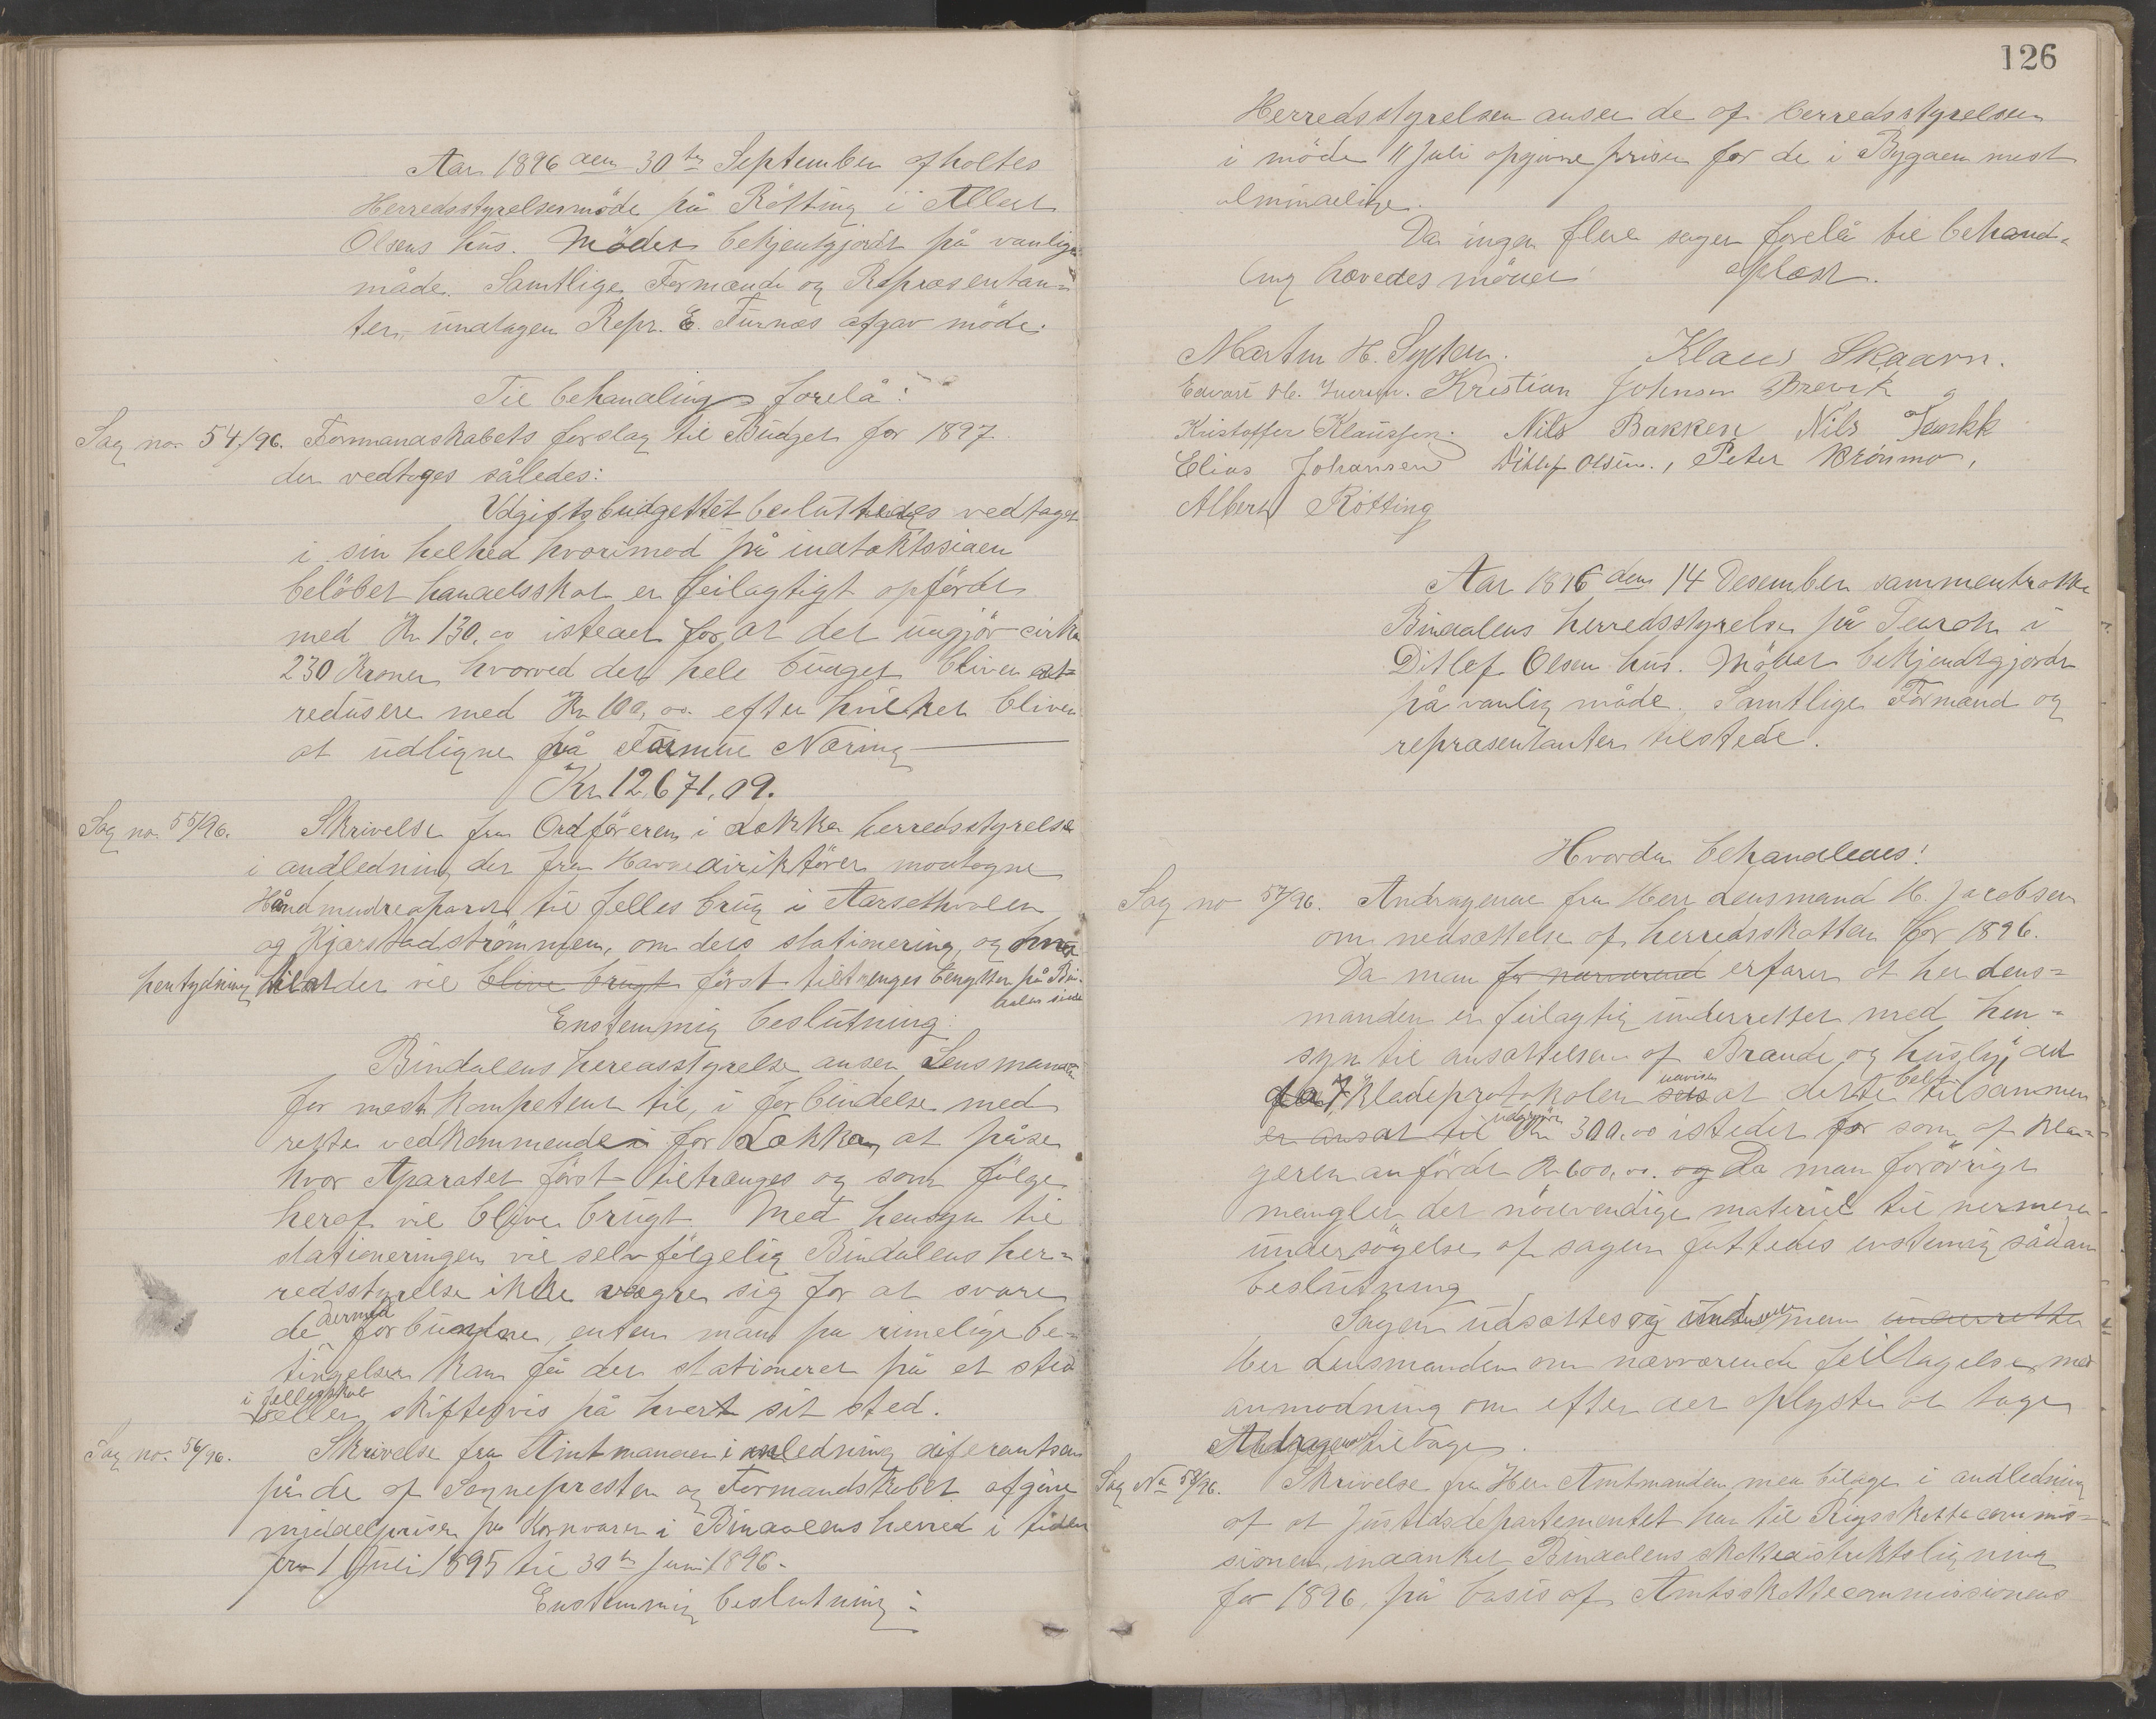 Aar 1896 den 30te September afholtes
Herredsstyrelsesmöde på Rötting i Albert
Olsens hus. Mödet bekjentgjordt på vanlige
måde. Samtlige Formænd og Repræsentan=
ter, undtagen Repr. E. Furnæs afgav möde.
Til behandling forelå:
Sag no. 54/96. Formandskabets forslag til Budget for 1897.
der vedtoges således:
Udgiftsbudgettet besluttedes vedtaget
i sin helhed hvorimod på indtæktssiden
belöbet handelsskat er feilagtigt opfördt
med Kr 130,00 istedet for at det udgjör cirka
230 Kroner hvorved det hele budget bliver at
redusere med Kr 100,00. efter hvilket bliver
at udligne på Formue Næring
Kr. 12,671,09.
Sag no. 55/96. Skrivelse fra Ordföreren i Lekka herredsstyrelse
i andledning det fra Havnedirektören modtagne
Håndmudreaparat til felles brug i Aarsethvalen
og Kjærstadströmmen, om dets stationering, og
hentydning til at det vil blive brugt först tiltrenges benyttet på Bin-
dalen side
Enstemmig beslutning:
Bindalens heredsstyrelse anser Lensmanden
for mest kompetent til, i forbindelse med
rette vedkommende for Lekka, at påse
hvor Aparatet först tiltrænges og som fölge
heraf vil blive brugt. Med hensyn til
stationeringen vil selvfölgelig Bindalens her=
redsstyrelse ikke vægre sig for at svare
de dermed forbundne, enten man på rimelige be=
tingelser kan få det stationeret på et sted
i felleskab
eller skiftevis på hvert sit sted.
Sag no. 56/96. Skrivelse fra Amtmanden i anledning diferantsen
på de af Sognepresten og Formandskabet afgivne
middelpriser på Kornvarer i Bindalens herred i tiden
fra 1 Juli 1895 til 30te Juni 1896.
Enstemmig beslutning:
126
Herredsstyrelsen anser de af herredsstyrelsen
i möde 11 Juli opgivne priser for de i Bygden mest
almindelige.
Da ingen flere sager forelå til behand=
ling hævedes mödet oplæst.
Martin H. Klaus Skaarn.
Edvard M. Kristian Johnsen Brevik
Kristoffer Klaussen. Nils Bakken Nils
Elias Johansen Ditlef Olsen., Peter Krönmo,
Albert Rötting
Aar 1896 den 14 Desember sammentraadte
Bindalens herredsstyrelse på Terraak i
Ditlef Olsens hus. Mödet bekjendtgjordt
på vanlig måde. Samtlige Formænd og
repræsentanter tilstede.
Hvorda behandledes:
Sag no 57/96. Andragende fra Herr Lensmand H. Jacobsen
om nedsættelse af herredsskatten for 1896.
Da man for nærværend erfarer at her Lens=
manden er feilagtig underrettet med hen=
syn til ansættelsen af Brænde og husly, det
Kladeprotokolen udviser at dette beløb tilsammen
er ansat til udgjör Kr 300,00 istedet for som af kla=
geren anfördt Kr 600,00. og Da man forövrigt
mangler det nödvendige materiel til nermere
undersögelse af sagen fattedes enstemig sådan
beslutning
Sagen udsættes og man underrette
Her Lensmanden om nærværende feiltagelse med
anmodning om efter det oplyste at tage
Andragendet tilbage.
Sag No 58/96. Skrivelse fra Herr Amtmanden med bilage i andledning
af at Justitsdepartementet har til Rigsskattecommis=
sionen, indanket Bindalens skattedistriktsligning
for 1896, på basis af Amtsskattecommissionens